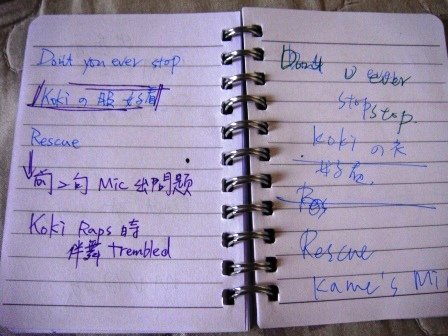 Don't you ever stop
Koki の服 好看
Rescue
前2句 Mic 出問題
Koki Raps 時
伴舞 trembled
Don't U ever
stop stop.
Koki の衣
好看.
Res
Rescue
Kame's Mi